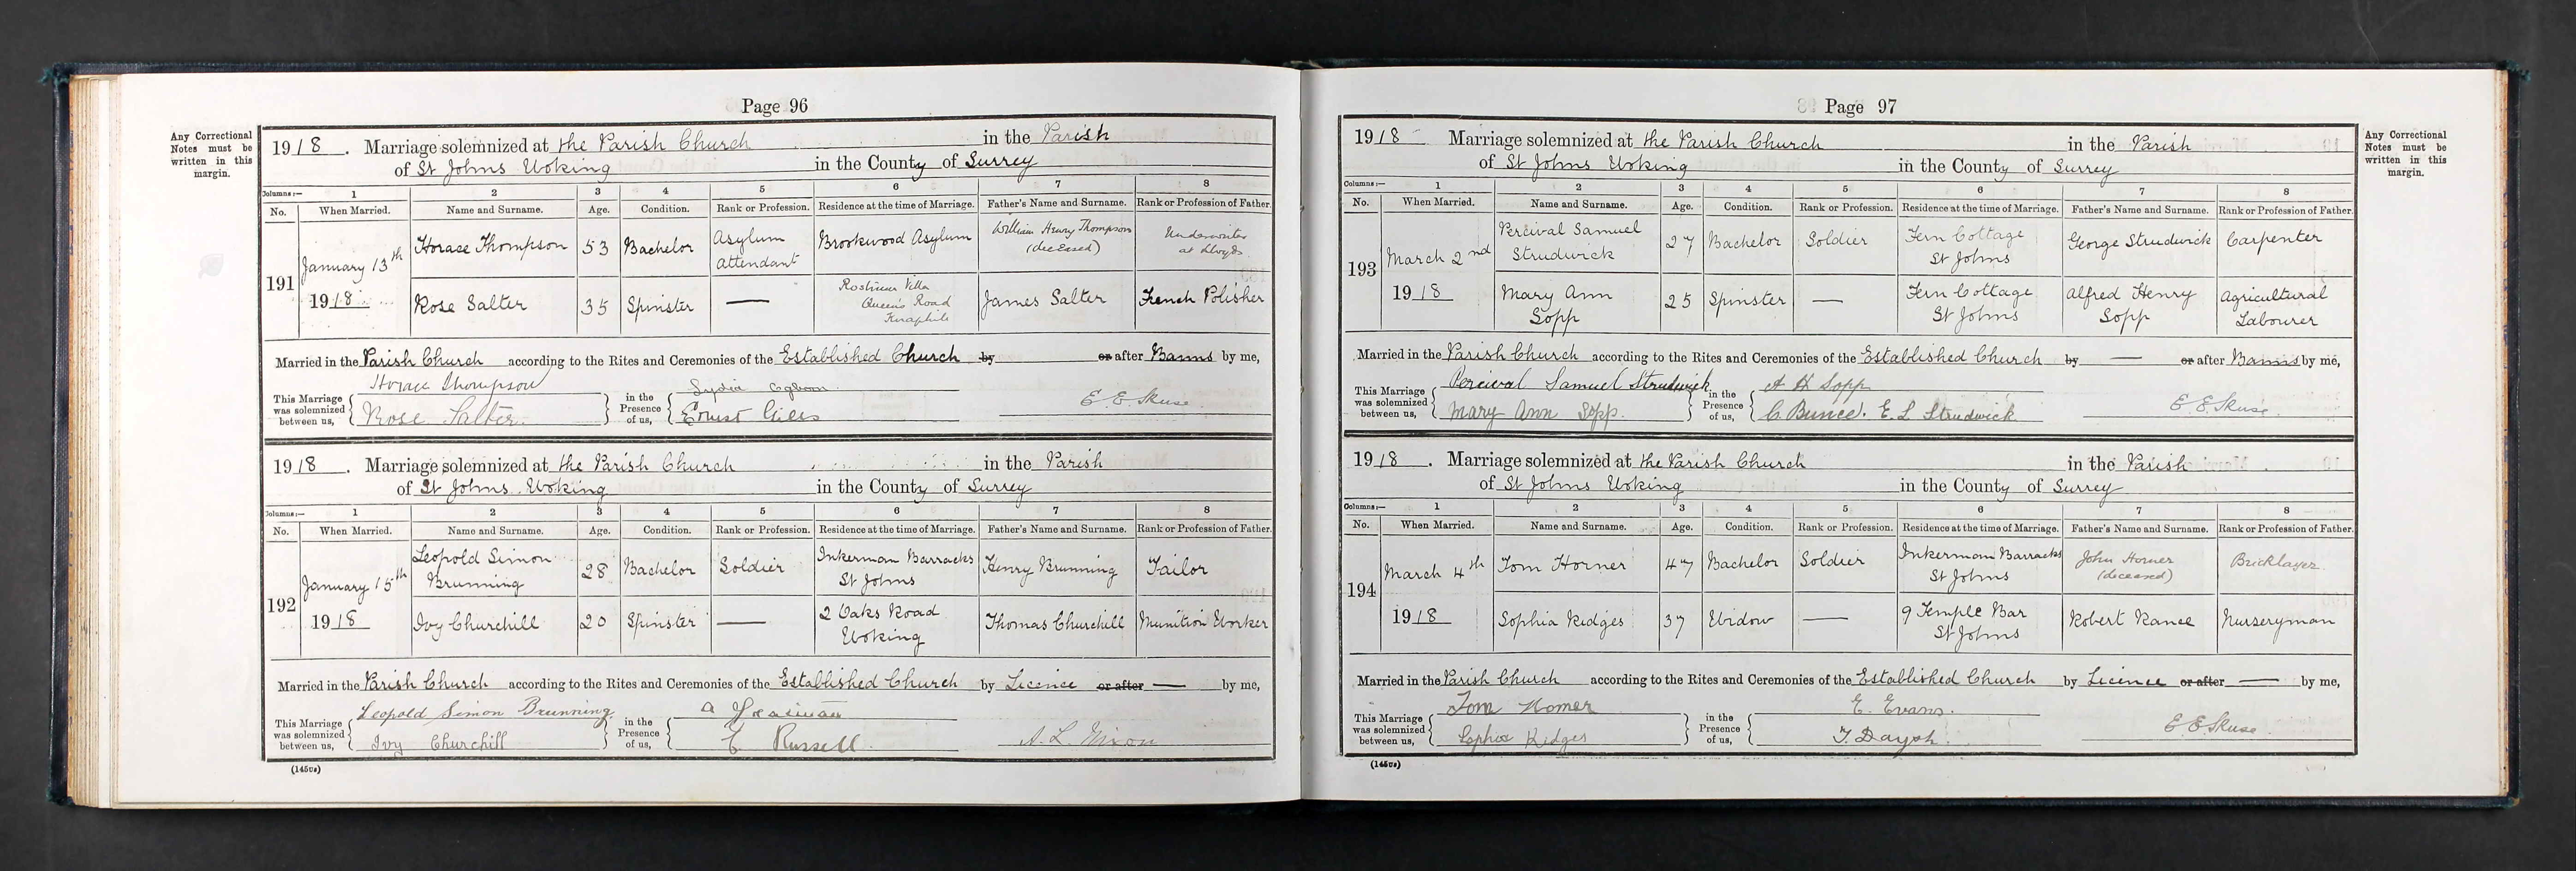 Page 96
Any Correctional
Notes must be
written in this
margin.
1918. Marriage solemnized at the Parish Church in the Parish
of St Johns Woking in the County of Surrey
Columns:— 1 2 3 4 5 6 7 8
No. When Married. Name and Surname. Age. Condition. Rank or Profession. Residence at the time of Marriage. Father's Name and Surname. Rank or Profession of Father.
191 January 13th 1918
Horace Thompson 53 Bachelor Asylum attendant Brookwood Asylum William Henry Thompson (deceased) Underwriter at Lloyds
Rose Salter 35 Spinster — Villa Queen's Road Knaphill James Salter French Polisher
Married in the Parish Church according to the Rites and Ceremonies of the Established Church by or after Banns by me,
This Marriage was solemnized between us, Horace Thompson Rose Salter in the Presence of us, Lydia Ernest Giles E E Skuse
1918. Marriage solemnized at the Parish Church in the Parish
of St Johns Woking in the County of Surrey
Columns:— 1 2 3 4 5 6 7 8
No. When Married. Name and Surname. Age. Condition. Rank or Profession. Residence at the time of Marriage. Father's Name and Surname. Rank or Profession of Father.
192 January 15th 1918
Leopold Simon Brunning 28 Bachelor Soldier Inkerman Barracks St Johns Henry Brunning Tailor
Ivy Churchill 20 Spinster — 2 Oaks Road Woking Thomas Churchill Munition Worker
Married in the Parish Church according to the Rites and Ceremonies of the Established Church by Licence or after — by me,
This Marriage was solemnized between us, Leopold Simon Brunning Ivy Churchill in the Presence of us, A E Russell A. L. Nixon
(145us)
Page 97
Any Correctional
Notes must be
written in this
margin.
1918 Marriage solemnized at the Parish Church in the Parish
of St Johns Woking in the County of Surrey
Columns:— 1 2 3 4 5 6 7 8
No. When Married. Name and Surname. Age. Condition. Rank or Profession. Residence at the time of Marriage. Father's Name and Surname. Rank or Profession of Father.
193 March 2nd 1918
Percival Samuel Strudwick 27 Bachelor Soldier Fern Cottage St Johns George Strudwick Carpenter
Mary Ann Sopp 25 Spinster — Fern Cottage St Johns Alfred Henry Sopp Agricultural Labourer
Married in the Parish Church according to the Rites and Ceremonies of the Established Church by — or after Banns by me,
This Marriage was solemnized between us, Percival Samuel Strudwick Mary Ann Sopp in the Presence of us, A H Sopp C. Bunce. E. L Strudwick E. E. Skuse
1918. Marriage solemnized at the Parish Church in the Parish
of St Johns Woking in the County of Surrey
Columns:— 1 2 3 4 5 6 7 8
No. When Married. Name and Surname. Age. Condition. Rank or Profession. Residence at the time of Marriage. Father's Name and Surname. Rank or Profession of Father.
194 March 4th 1918
Tom Horner 47 Bachelor Soldier Inkerman Barracks St Johns John Horner (deceased) Bricklayer
Sophia Kidges 37 Widow — 9 Temple Bar St Johns Robert Rance Nurseryman
Married in the Parish Church according to the Rites and Ceremonies of the Established Church by Licence or after — by me,
This Marriage was solemnized between us, Tom Horner Sophia Kidges in the Presence of us, E. Evans. T. Daysh. E E Skuse
(145us)